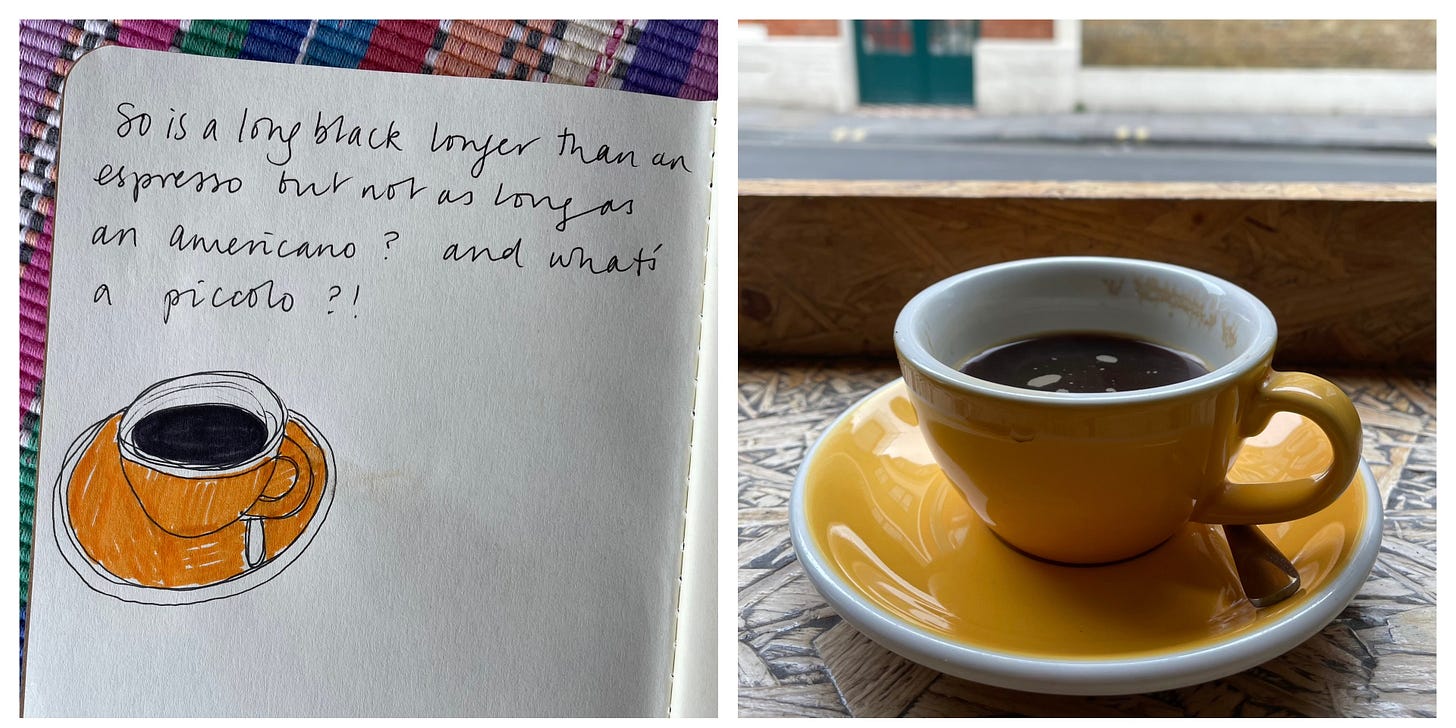 So is a long black longer than an
espresso but not as long as
an americano ? and what's
a piccolo ?!